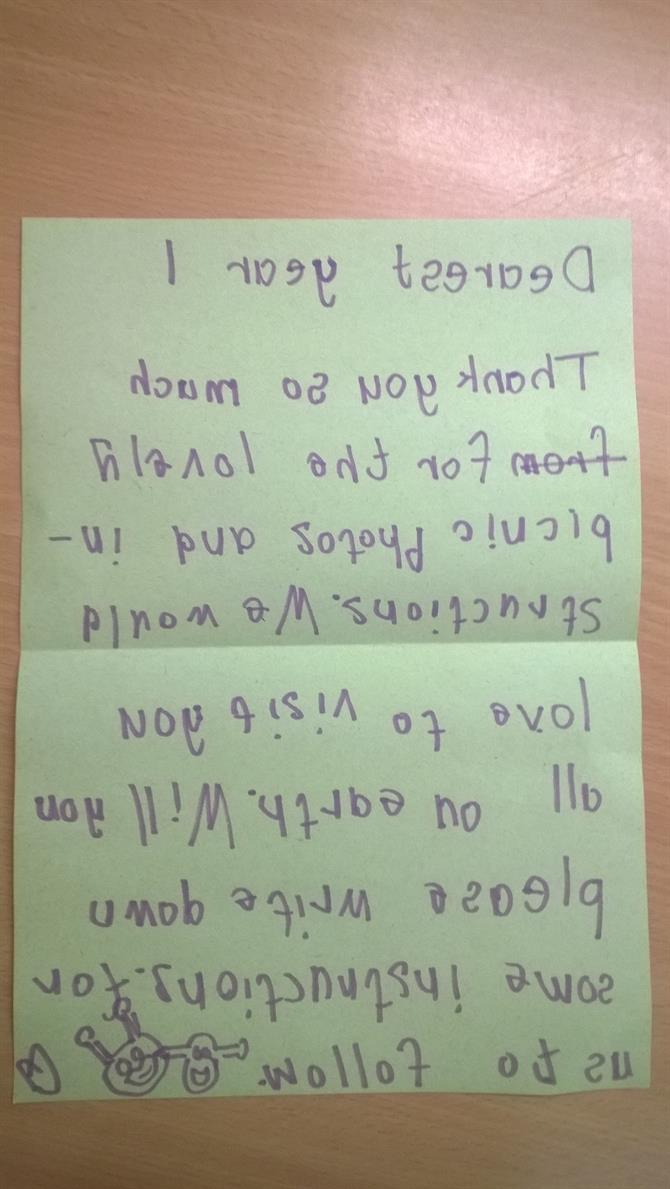 Dearest year 1
Thank you so much
from for the lovely
picnic photos and in-
structions. We would
love to visit you
all on earth. Will you
please write down
some instructions for
us to follow.